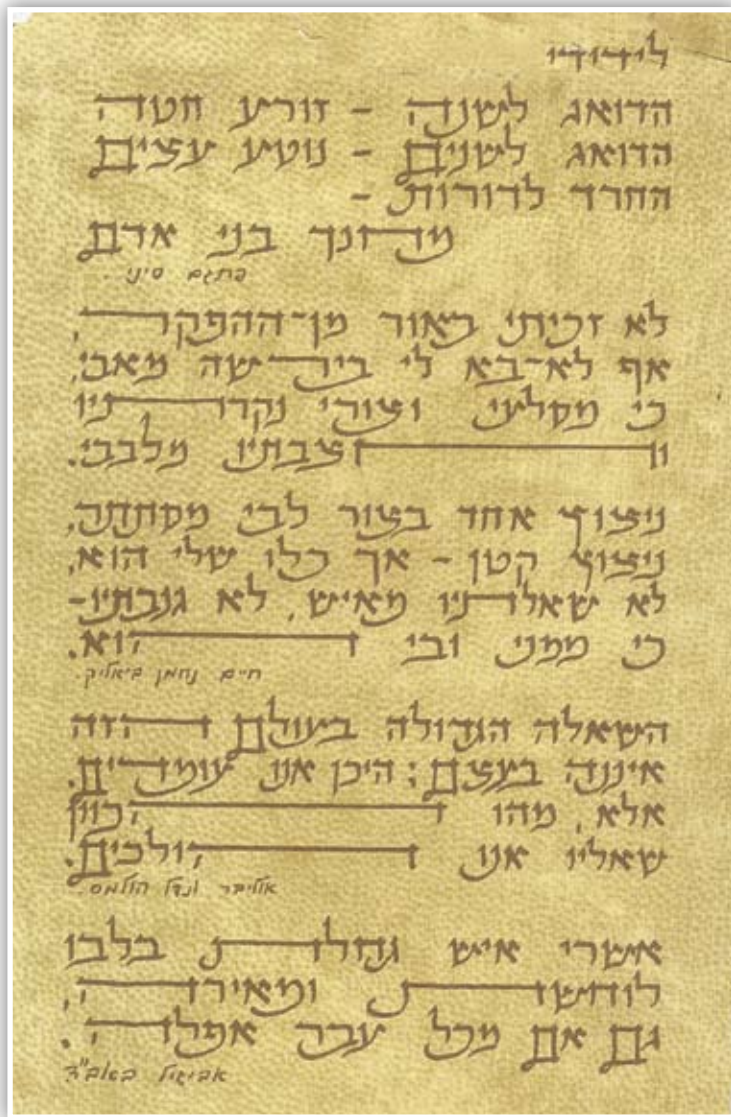 לידודיו
הדואג לשנה - זורע חטה
הדואג לשנים - נוטע עצים
החרד לדורות -
מחנך בני אדם
פתגם סיני.
לא זכיתי באור מן־ההפקר,
אף לא־בא לי בירשה מאבי,
כי מסלעי וצורי נקרתיו
וחצבתיו מלבבי.
ניצוץ אחד בצור לבי מסתתר,
ניצוץ קטן - אך כלו שלי הוא,
לא שאלתיו מאיש, לא גנבתיו -
כי ממני ובי הוא.
חיים נחמן ביאליק.
השאלה הגדולה בעולם הזה
איננה בעצם: היכן אנו עומדים,
אלא, מהו הכוון
שאליו אנו הולכים.
אוליבר ונדל הולמס.
אשרי איש גחלת בלבו
לוחשת ומאירה,
גם אם מכל עבר אפלה.
אביגיל באב"ד